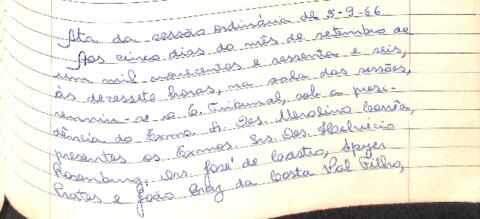 Ata da sessão ordinária de 5-9-66
Aos cinco dias do mês de setembro de
um mil novecentos e sessenta e seis,
às dezessete horas, na sala das sessões,
reuniu-se o E. Tribunal, sob a presi-
dência do Exmo. Sr. Des. Merolino Corrêa,
presentes os Exmos Srs. Des. Helvécio
Rosenburg, Drs José de Castro, Speyer
Prates e João Braz da Costa Val Filho,